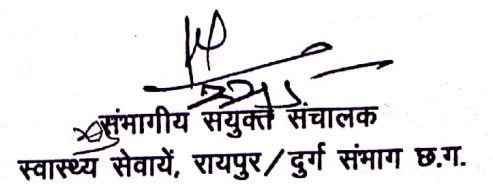 संभागीय संयुक्त संचालक
स्वास्थ्य सेवायें, रायपुर/दुर्ग संभाग छ.ग.